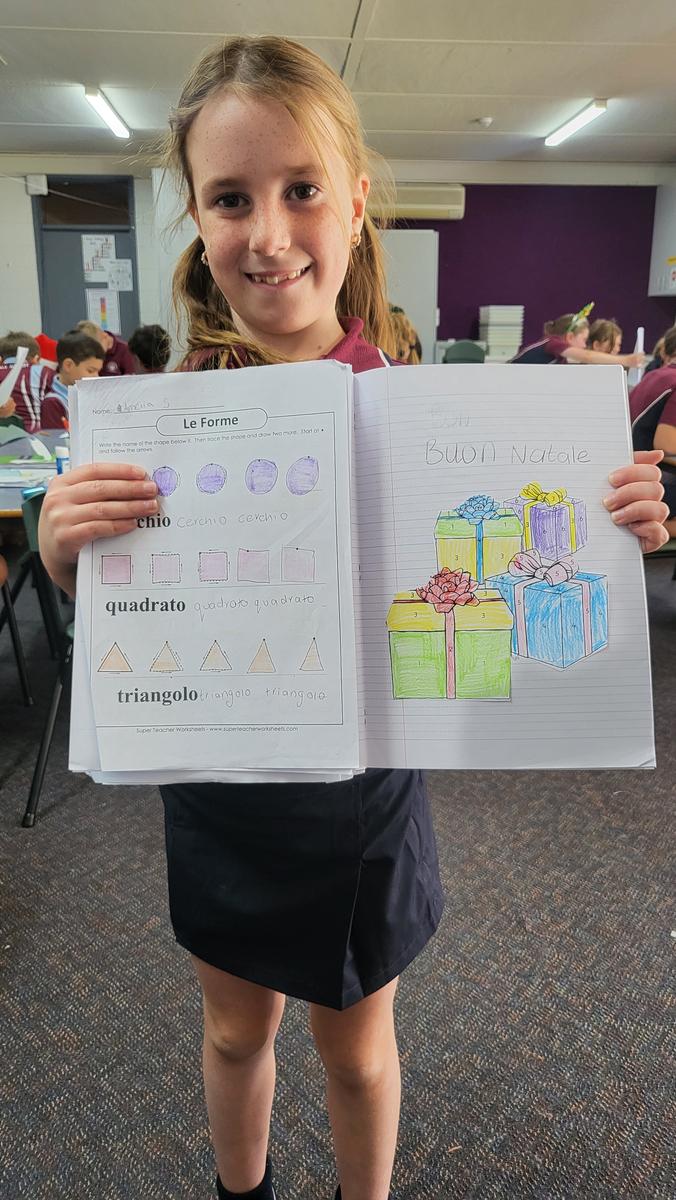 Name:
Le Forme
Write the name of the shape below it. Then trace the shape and draw two more. Start at •
and follow the arrows.
chio cerchio cerchio
quadrato quadrato quadrato
triangolo triangolo triangolo
Super Teacher Worksheets - www.superteacherworksheets.com
Buon
BUON Natale
1
3
5
3
3
3
1